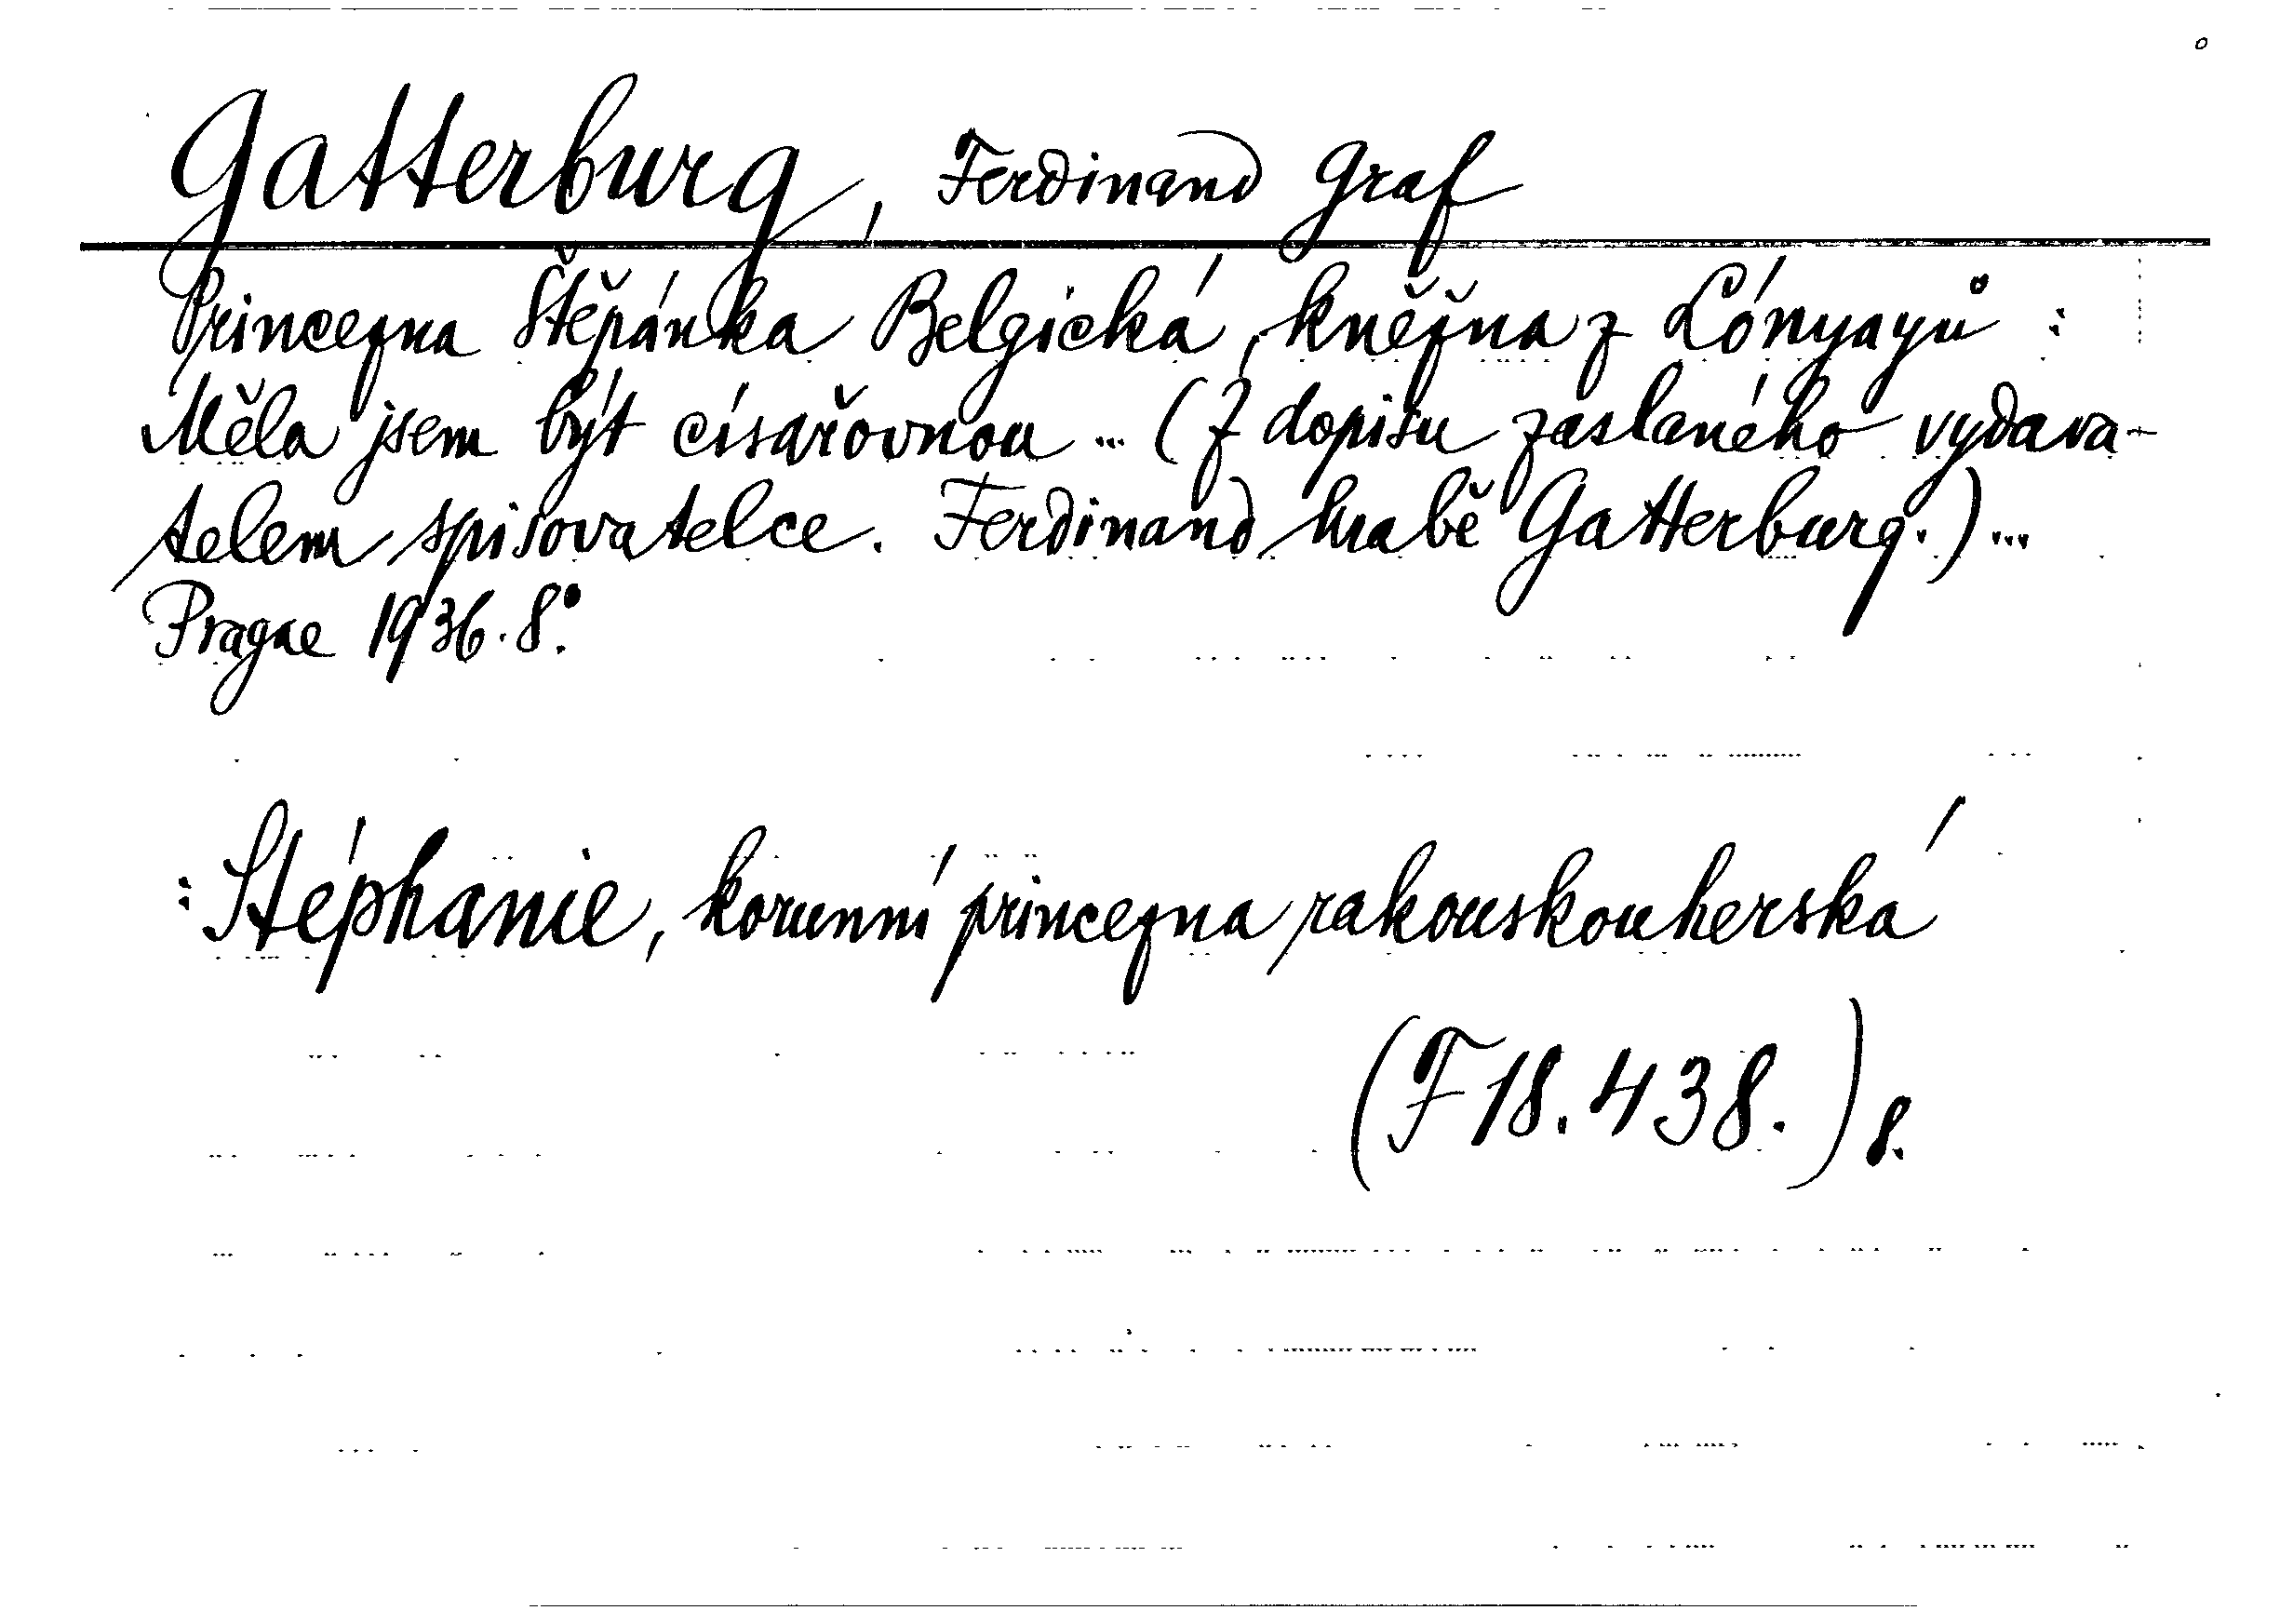 Gatterburg, Ferdinand Graf
Princezna Štěpánka Belgická, kněžna z Lónyayů :
Měla jsem být císařovnou ... (Z dopisu zaslaného vydava-
telem spisovatelce. Ferdinand hrabě Gatterburg.) ...
Prague 1936. 8°.
: Stéphanie, korunní princezna rakouskouherská
(F 18.438.) 8.